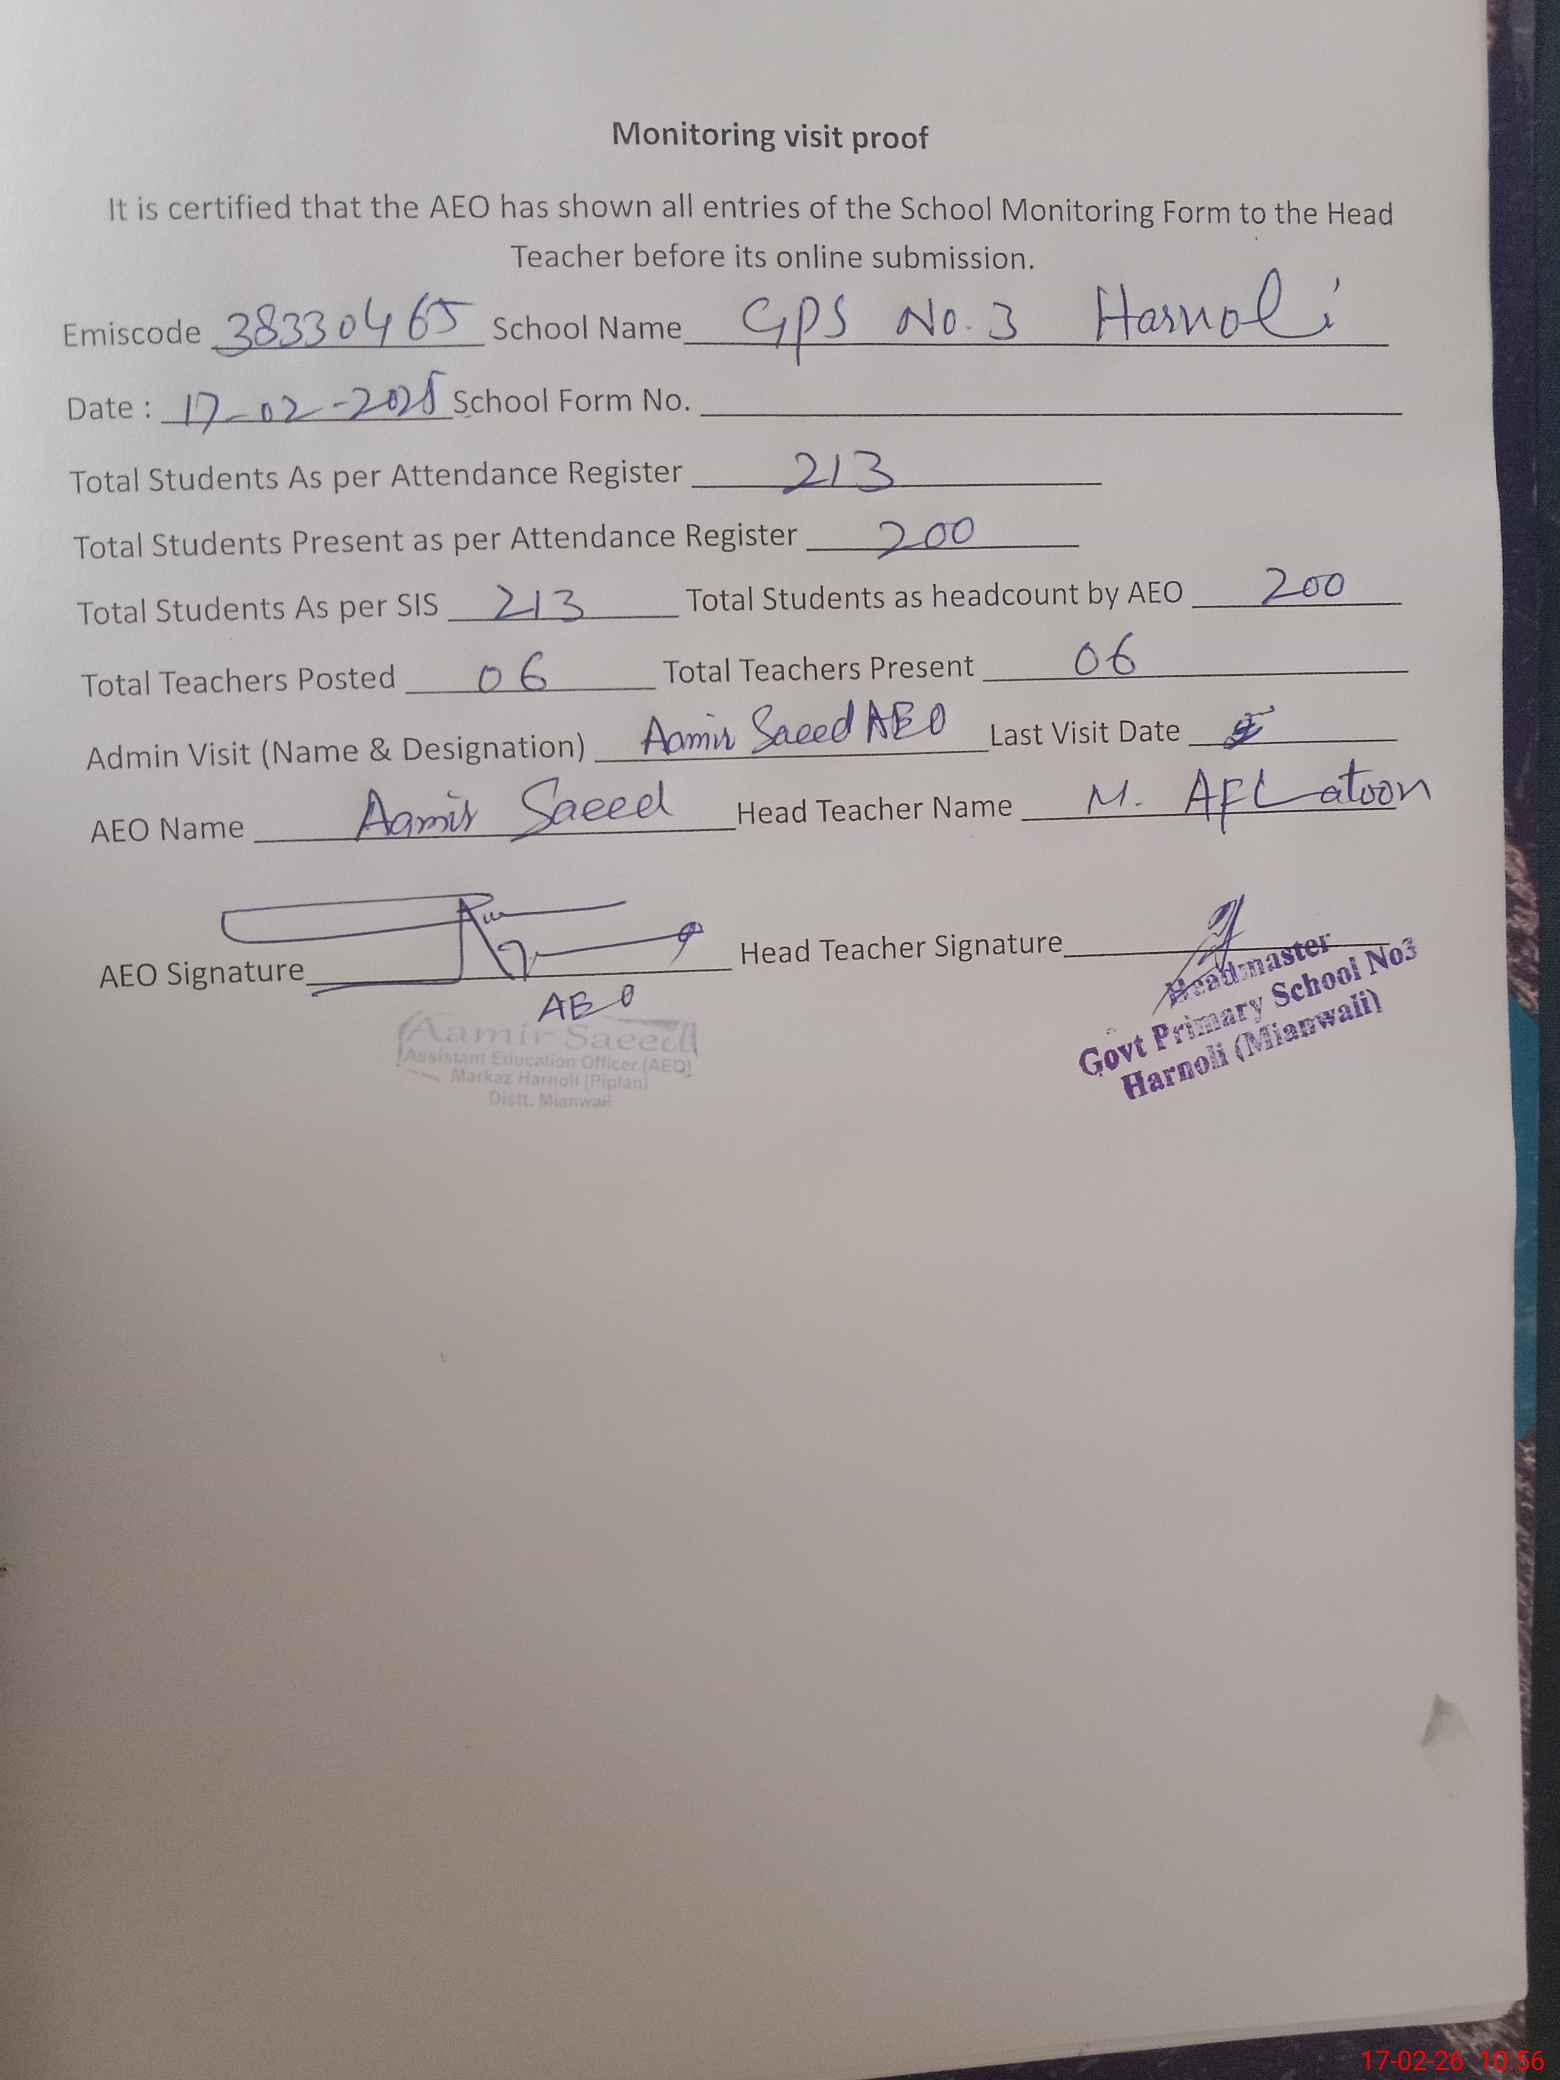 Monitoring visit proof
It is certified that the AEO has shown all entries of the School Monitoring Form to the Head
Teacher before its online submission.
Emiscode 38330465 School Name GPS No. 3 Harnoli
Date : 17-02-2025 School Form No.
Total Students As per Attendance Register 213
Total Students Present as per Attendance Register 200
Total Students As per SIS 213 Total Students as headcount by AEO 200
Total Teachers Posted 06 Total Teachers Present 06
Admin Visit (Name & Designation) Aamir Saeed AEO Last Visit Date
AEO Name Aamir Saeed Head Teacher Name M. AFLatoon
AEO Signature Head Teacher Signature
AEO
Aamir Saeed
Assistant Education Officer (AEO)
Markaz Harnoli (Piplan)
Distt. Mianwali
Headmaster
Govt Primary School No3
Harnoli (Mianwali)
17-02-26 10:56